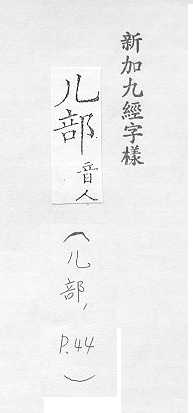 新加九經字樣
儿部 音人
（儿部，P.44）